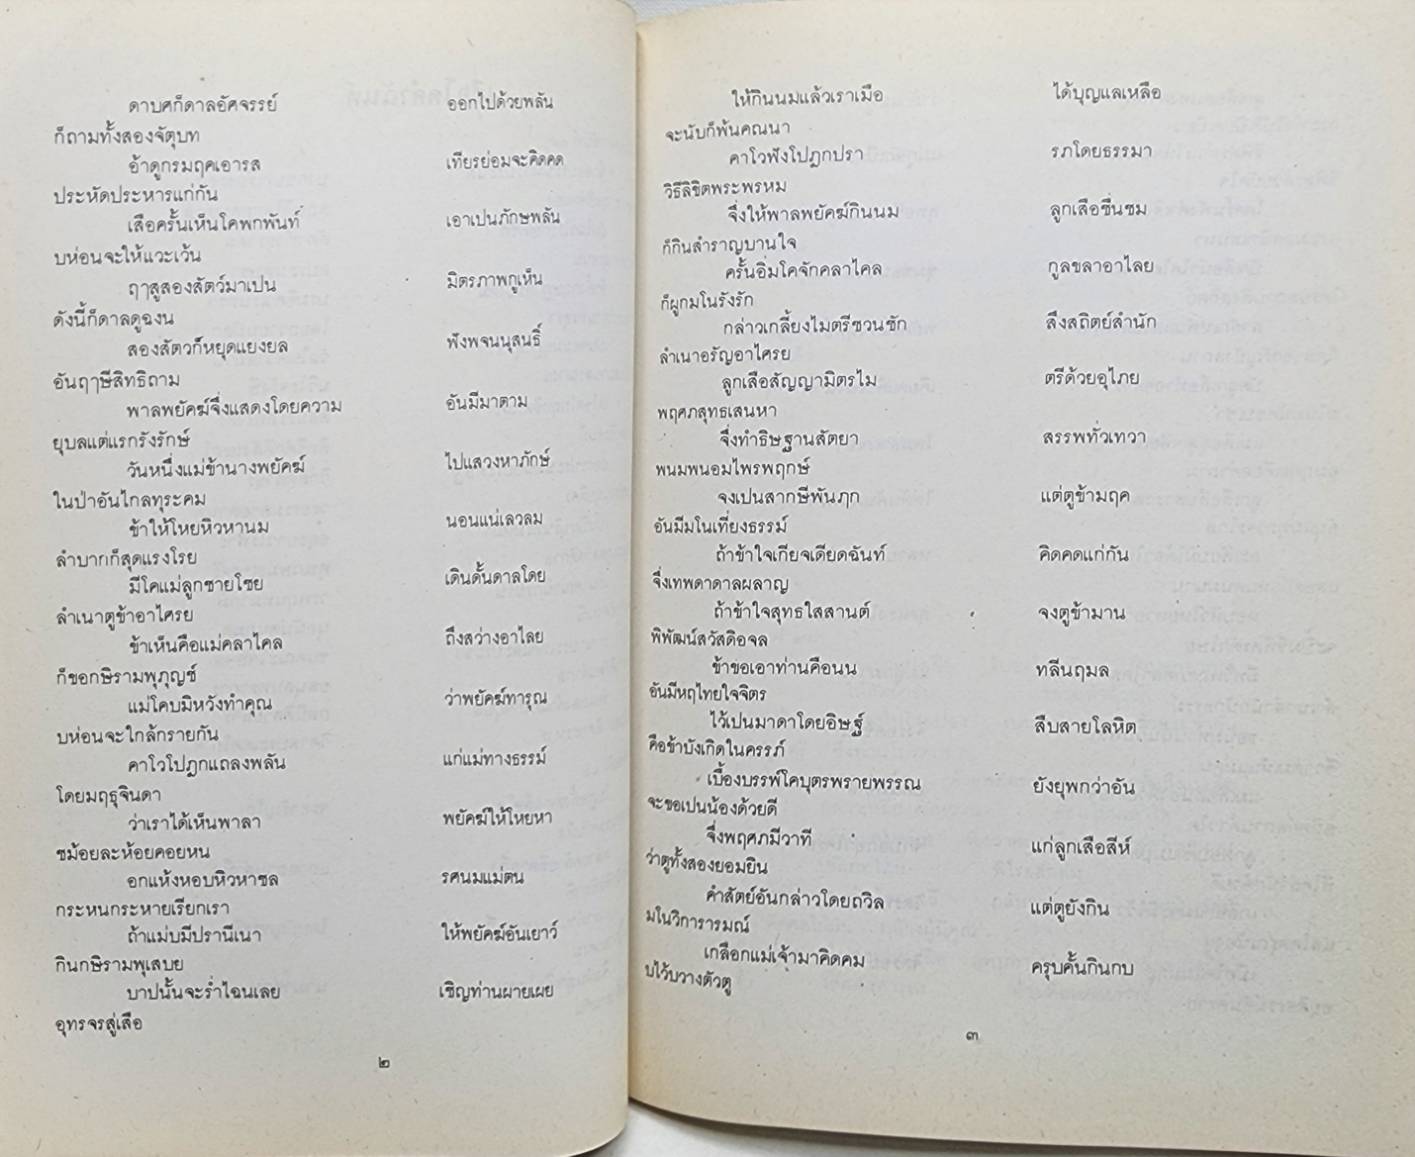 ดาบศก็ดาลอัศจรรย์ ออกไปด้วยพลัน
ก็ถามทั้งสองจัตุบท
อ้าดูกรมฤคเอารส เทียรย่อมจะคิดคด
ประหัดประหารแก่กัน
เสือครั้นเห็นโคพกพันท์ เอาเปนภักษพลัน
บห่อนจะให้แวะเว้น
ฤๅสูสองสัตว์มาเปน มิตรภาพกูเห็น
ดังนี้ก็ดาลดูฉงน
สองสัตวก็หยุดแยงยล ฟังพจนนุสนธิ์
อันฤๅษีสิทธิถาม
พาลพยัคฆ์จึ่งแสดงโดยความ อันมีมาตาม
ยุบลแต่แรกรังรักษ์
วันหนึ่งแม่ข้านางพยัคฆ์ ไปแสวงหาภักษ์
ในป่าอันไกลทุระคม
ข้าให้โหยหิวหานม นอนแน่เลวลม
ลำบากก็สุดแรงโรย
มีโคแม่ลูกชายโชย เดินดั้นดาลโดย
ลำเนาตูข้าอาไศรย
ข้าเห็นคือแม่คลาไคล ถึงสว่างอาไลย
ก็ขอกษิรามพุภุญช์
แม่โคบมิหวังทำคุณ ว่าพยัคฆ์ทารุณ
บห่อนจะใกล้กรายกัน
คาโวโปฎกแถลงพลัน แก่แม่ทางธรรม์
โดยมฤธุจินดา
ว่าเราได้เห็นพาลา พยัคฆ์ให้โหยหา
ชม้อยละห้อยคอยหน
อกแห้งหอบหิวหาชล รศนมแม่ตน
กระหนกระหายเรียกเรา
ถ้าแม่บมีปรานีเนา ให้พยัคฆ์อันเยาว์
กินกษิรามพุเสบย
บาปนั้นจะร่ำไอนเลย เชิญท่านผายเผย
อุทรจรสู่เสือ
๒
ให้กินนมแล้วเราเมือ ได้บุญแลเหลือ
จะนับก็พ้นคณนา
คาโวฟังโปฎกปรา รภโดยธรรมา
วิธีลิขิตพระพรหม
จึ่งให้พาลพยัคฆ์กินนม ลูกเสือชื่นชม
ก็กินสำราญบานใจ
ครั้นอิ่มโคจักคลาไคล กูลขลาอาไลย
ก็ผูกมโนรังรัก
กล่าวเกลี้ยงไมตรีชวนชัก สึงสถิตย์สำนัก
ลำเนาอรัญอาไศรย
ลูกเสือสัญญามิตรไม ตรีด้วยอุไภย
พฤศภสุทธเสนหา
จึ่งทำธิษฐานสัตยา สรรพทั่วเทวา
พนมพนอมไพรพฤกษ์
จงเปนสากษีพันภฦก แต่ตูข้ามฤค
อันมีมโนเที่ยงธรรม์
ถ้าข้าใจเกียจเดียดฉันท์ คิดคดแก่กัน
จึ่งเทพดาดาลผลาญ
ถ้าข้าใจสุทธใสสานต์ จงตูข้ามาน
พิพัฒน์สวัสดิอจล
ข้าขอเอาท่านคือนน ทลีนฤมล
อันมีหฤไทยใจจิตร
ไว้เปนมาดาโดยอิษฐ์ สืบสายโลหิต
คือข้าบังเกิดในครรภ์
เบื้องบรรพ์โคบุตรพรายพรรณ ยังยุพกว่าอัน
จะขอเปนน้องด้วยดี
จึ่งพฤศภมีวาที แก่ลูกเสือสีห์
ว่าตูทั้งสองยอมยิน
คำสัตย์อันกล่าวโดยถวิล แต่ตูยังกิน
มโนวิการารมณ์
เกลือกแม่เจ้ามาคิดคม ครุบคั้นกินกบ
บไว้บวางตัวตู
๓